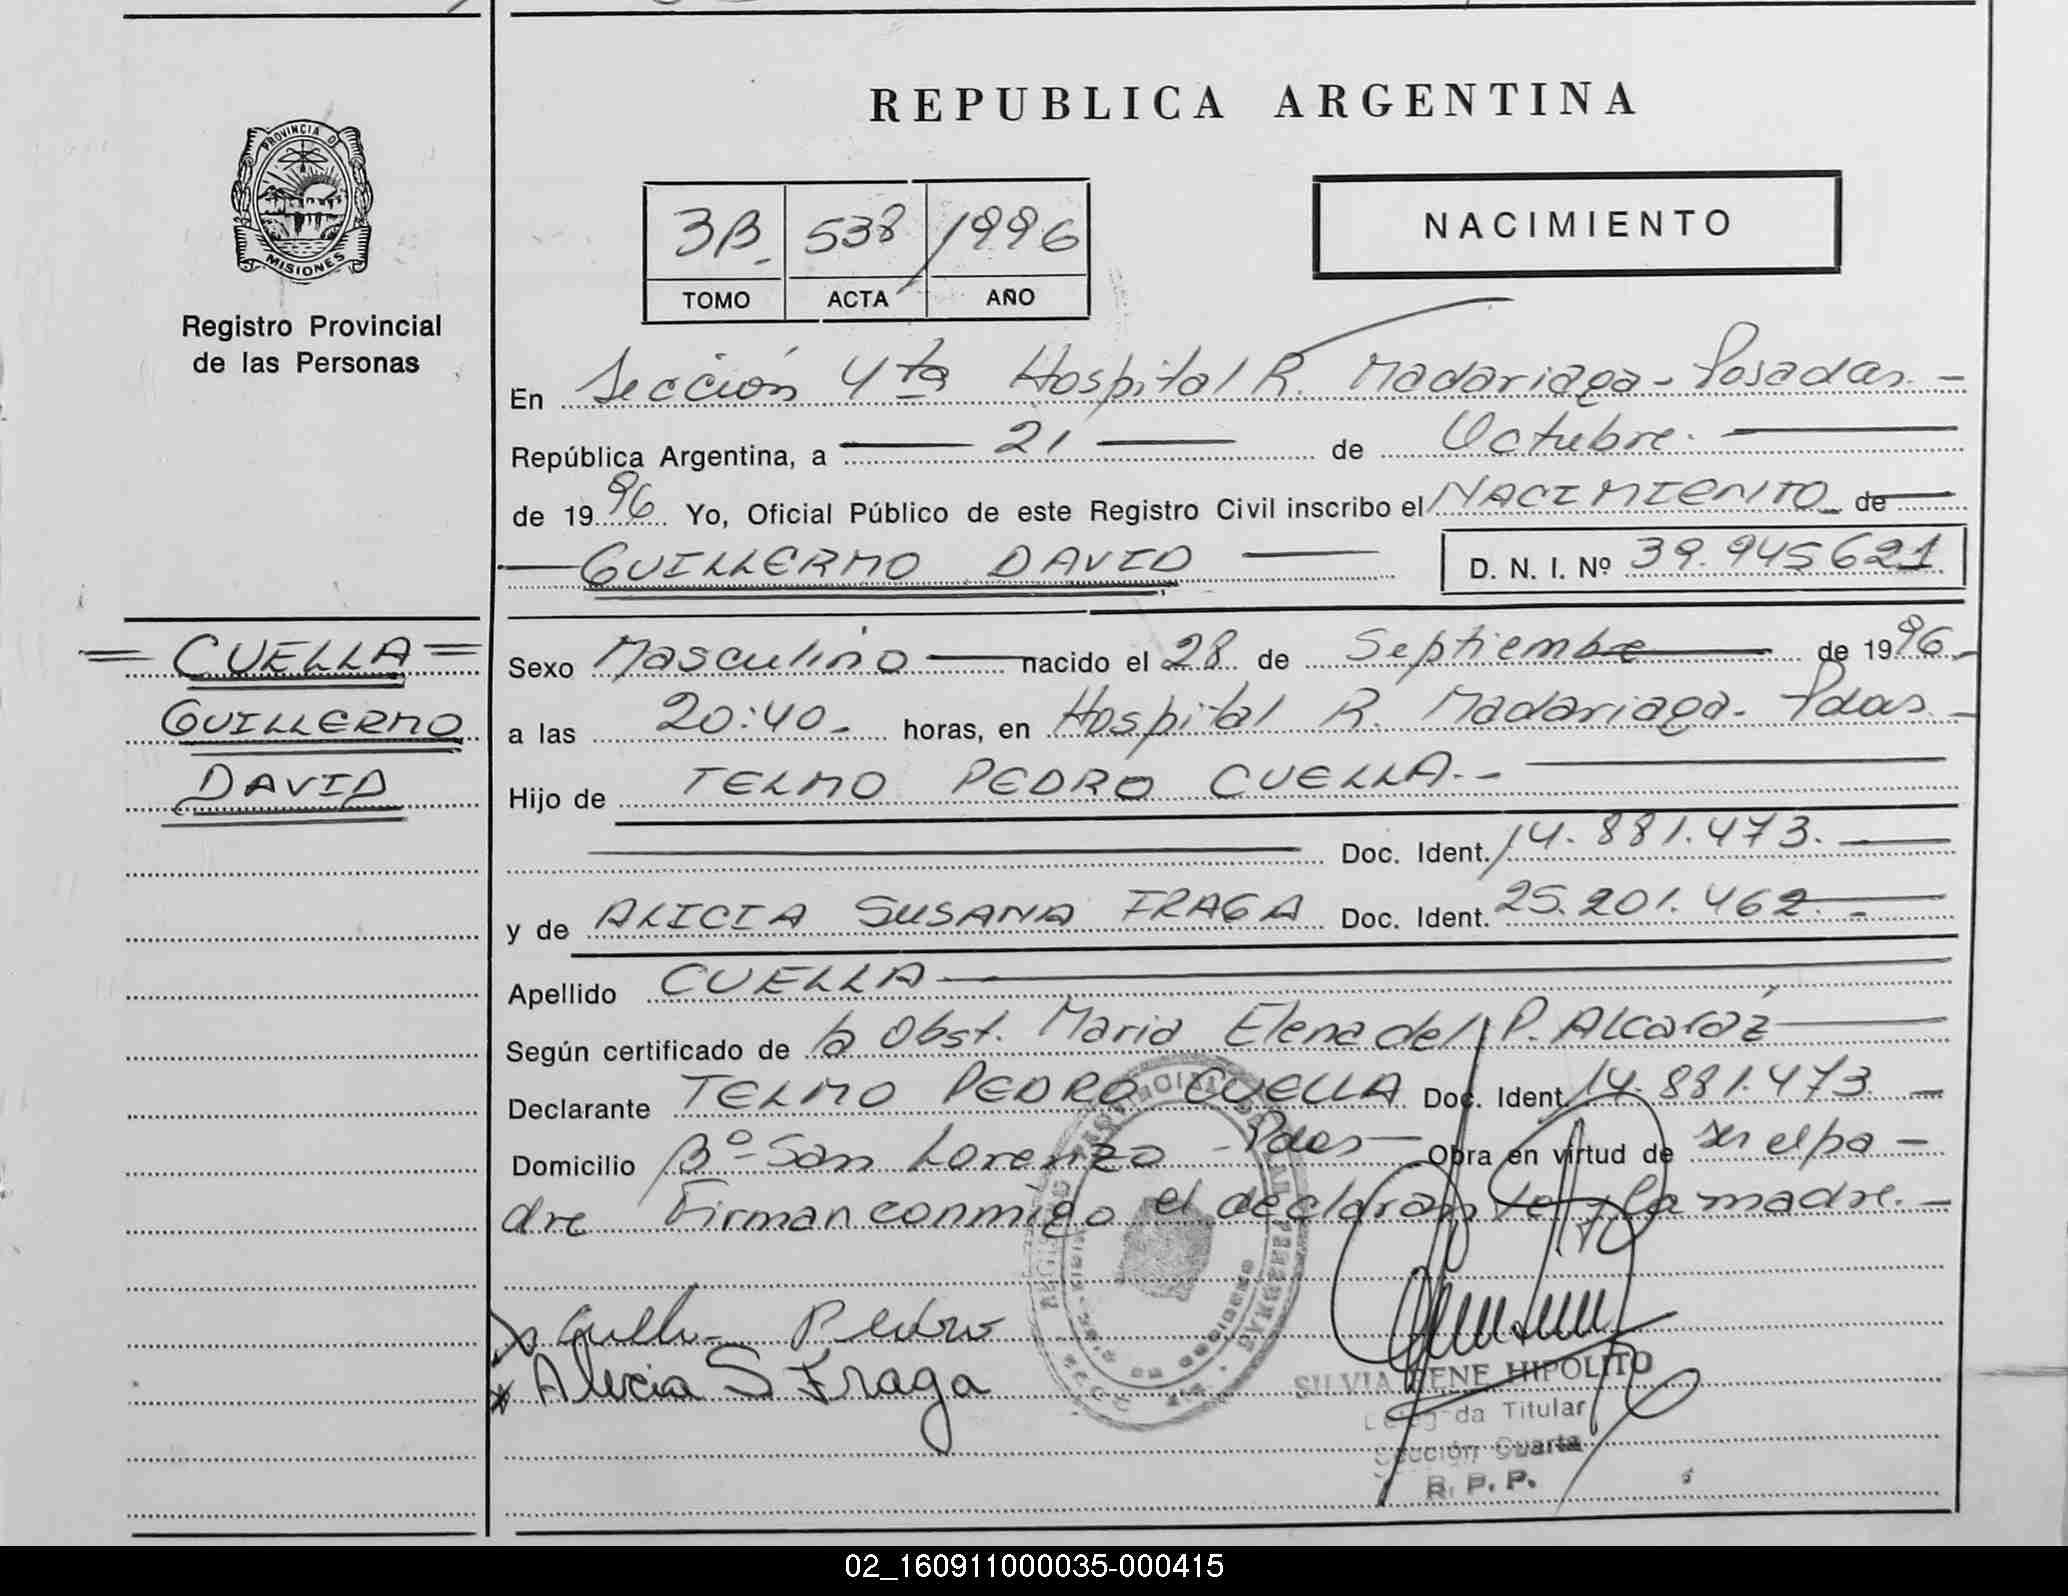 REPUBLICA ARGENTINA
PROVINCIA D
MISIONES
Registro Provincial
de las Personas
3B. 538 /1996
TOMO ACTA AÑO
NACIMIENTO
En Sección 4ta Hospital R. Madariaga - Posadas. -
República Argentina, a 21 de Octubre.
de 1996 Yo, Oficial Público de este Registro Civil inscribo el NACIMIENTO de
GUILLERMO DAVID D. N. I. Nº 39.945621
CUELLA
GUILLERMO
DAVID
Sexo Masculino nacido el 28 de Septiembre de 1996.
a las 20:40. horas, en Hospital R. Madariaga. Pdas.
Hijo de TELMO PEDRO CUELLA. -
Doc. Ident. 14.881.473.
y de ALICIA SUSANA FRAGA Doc. Ident. 25.201.462. -
Apellido CUELLA
Según certificado de la Obst. Maria Elena del P. Alcaráz
Declarante TELMO PEDRO CUELLA Doc. Ident. 14.881.473
Domicilio Bº San Lorenzo - Pdas Obra en virtud de ser el pa -
dre Firman conmigo el declarante y la madre. -
Cuella Pedro
Alicia S Fraga
SILVIA IRENE HIPOLITO
Delegada Titular
Sección Cuarta
R. P. P.
02_160911000035-000415